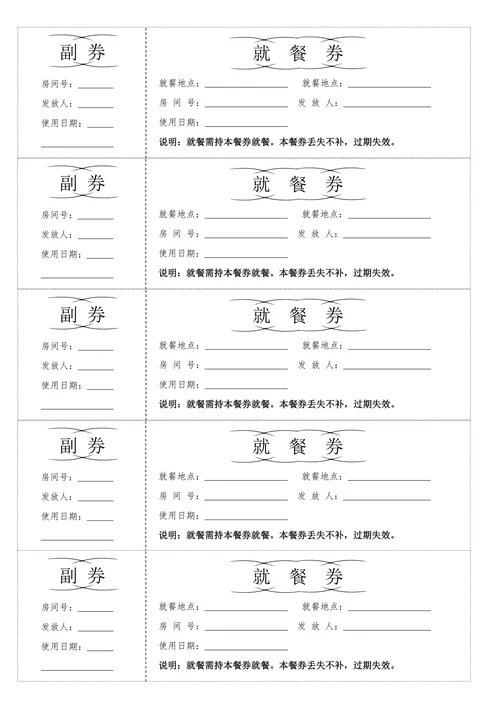 副 券
房间号：
发放人：
使用日期：
就 餐 券
就餐地点： 就餐地点：
房 间 号： 发 放 人：
使用日期：
说明：就餐需持本餐券就餐。本餐券丢失不补，过期失效。
副 券
房间号：
发放人：
使用日期：
就 餐 券
就餐地点： 就餐地点：
房 间 号： 发 放 人：
使用日期：
说明：就餐需持本餐券就餐。本餐券丢失不补，过期失效。
副 券
房间号：
发放人：
使用日期：
就 餐 券
就餐地点： 就餐地点：
房 间 号： 发 放 人：
使用日期：
说明：就餐需持本餐券就餐。本餐券丢失不补，过期失效。
副 券
房间号：
发放人：
使用日期：
就 餐 券
就餐地点： 就餐地点：
房 间 号： 发 放 人：
使用日期：
说明：就餐需持本餐券就餐。本餐券丢失不补，过期失效。
副 券
房间号：
发放人：
使用日期：
就 餐 券
就餐地点： 就餐地点：
房 间 号： 发 放 人：
使用日期：
说明：就餐需持本餐券就餐。本餐券丢失不补，过期失效。